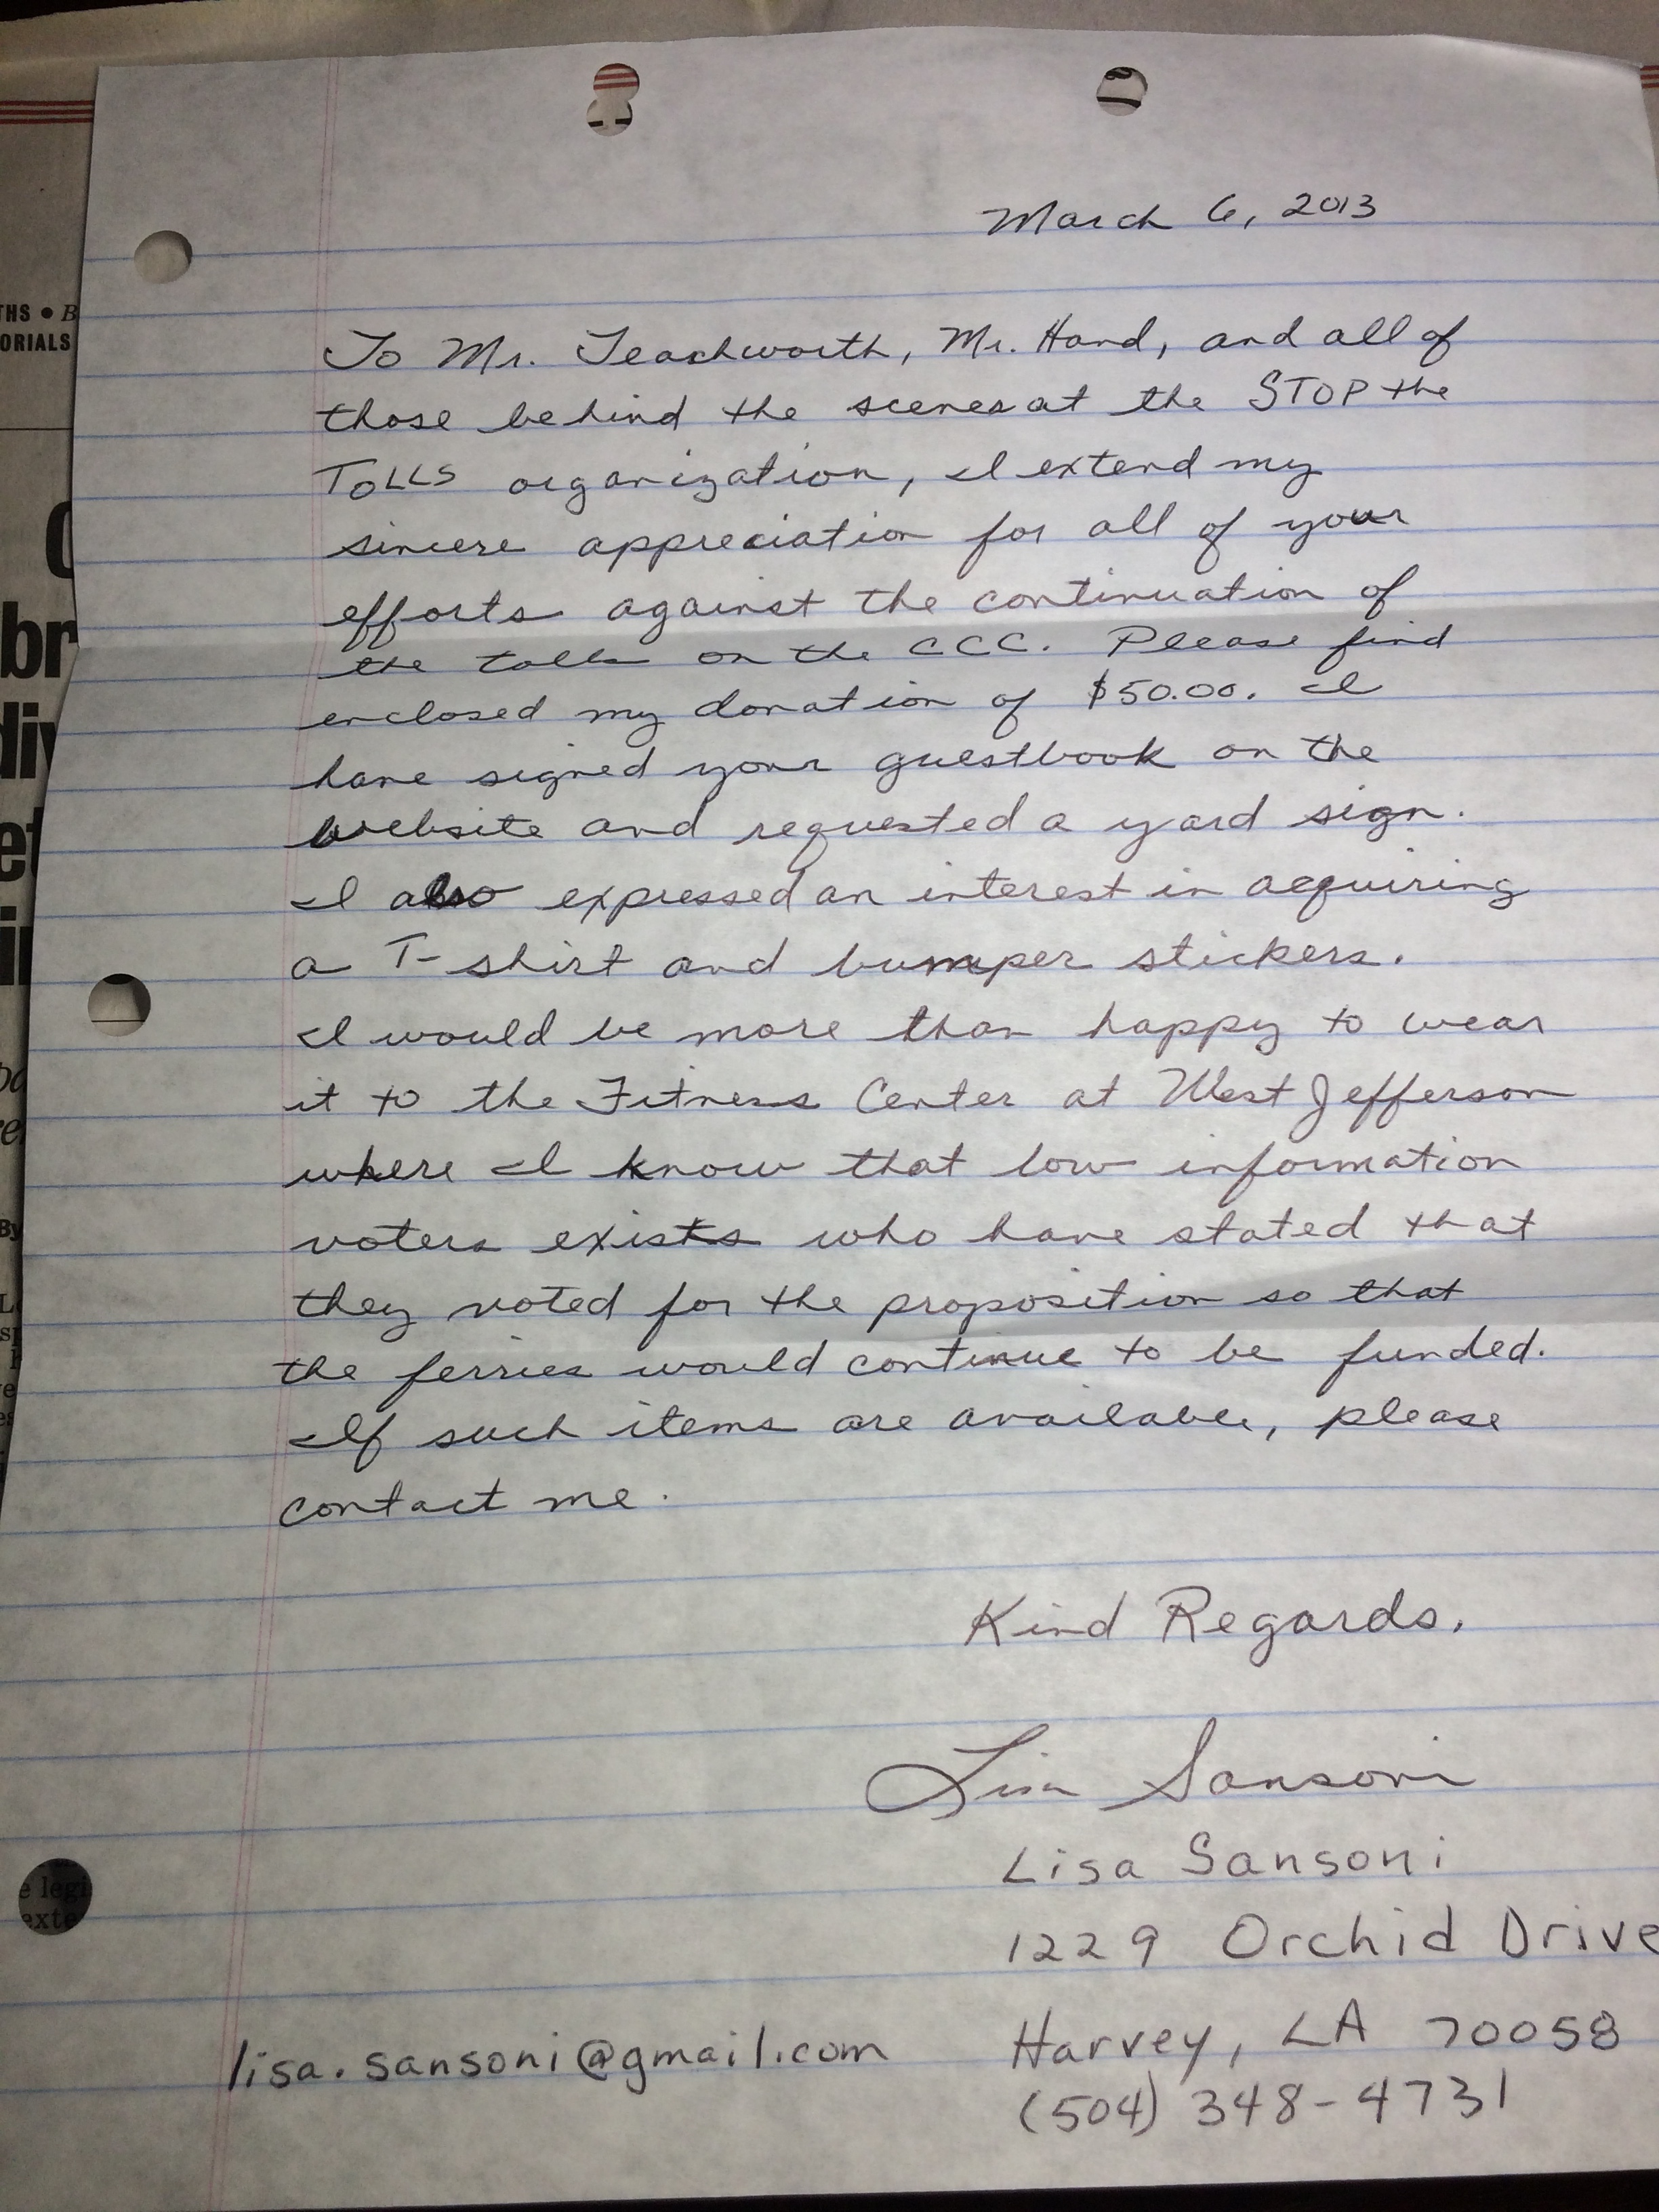 March 6, 2013
To Mr. Teachworth, Mr. Hand, and all of
those behind the scenes at the STOP the
TOLLS organization, I extend my
sincere appreciation for all of your
efforts against the continuation of
the tolls on the CCC. Please find
enclosed my donation of $50.00. I
have signed your guestbook on the
website and requested a yard sign.
I also expressed an interest in acquiring
a T-shirt and bumper stickers.
I would be more than happy to wear
it to the Fitness Center at West Jefferson
where I know that low information
voters exists who have stated that
they voted for the proposition so that
the ferries would continue to be funded.
If such items are available, please
contact me.
Kind Regards,
Lisa Sansoni
Lisa Sansoni
1229 Orchid Drive
Harvey, LA 70058
lisa.sansoni@gmail.com
(504) 348-4731
THS • B
ORIALS
br
div
By
e legi
exte